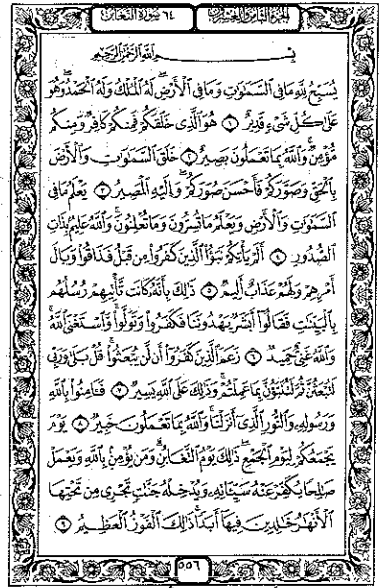 الجزء الثامن والعشرون ٦٤ سورة التغابن
بسم الله الرحمن الرحيم
يُسَبِّحُ لِلَّهِ مَا فِي السَّمَٰوَٰتِ وَمَا فِي الْأَرْضِ لَهُ الْمُلْكُ وَلَهُ الْحَمْدُ وَهُوَ
عَلَىٰ كُلِّ شَيْءٍ قَدِيرٌ ١ هُوَ الَّذِي خَلَقَكُمْ فَمِنكُمْ كَافِرٌ وَمِنكُم
مُّؤْمِنٌ وَاللَّهُ بِمَا تَعْمَلُونَ بَصِيرٌ ٢ خَلَقَ السَّمَٰوَٰتِ وَالْأَرْضَ
بِالْحَقِّ وَصَوَّرَكُمْ فَأَحْسَنَ صُوَرَكُمْ وَإِلَيْهِ الْمَصِيرُ ٣ يَعْلَمُ مَا فِي
السَّمَٰوَٰتِ وَالْأَرْضِ وَيَعْلَمُ مَا تُسِرُّونَ وَمَا تُعْلِنُونَ وَاللَّهُ عَلِيمٌ بِذَاتِ
الصُّدُورِ ٤ أَلَمْ يَأْتِكُمْ نَبَؤُا الَّذِينَ كَفَرُوا مِن قَبْلُ فَذَاقُوا وَبَالَ
أَمْرِهِمْ وَلَهُمْ عَذَابٌ أَلِيمٌ ٥ ذَٰلِكَ بِأَنَّهُ كَانَت تَّأْتِيهِمْ رُسُلُهُم
بِالْبَيِّنَٰتِ فَقَالُوا أَبَشَرٌ يَهْدُونَنَا فَكَفَرُوا وَتَوَلَّوا وَّاسْتَغْنَى اللَّهُ
وَاللَّهُ غَنِيٌّ حَمِيدٌ ٦ زَعَمَ الَّذِينَ كَفَرُوا أَن لَّن يُبْعَثُوا قُلْ بَلَىٰ وَرَبِّي
لَتُبْعَثُنَّ ثُمَّ لَتُنَبَّؤُنَّ بِمَا عَمِلْتُمْ وَذَٰلِكَ عَلَى اللَّهِ يَسِيرٌ ٧ فَـَٔامِنُوا بِاللَّهِ
وَرَسُولِهِ وَالنُّورِ الَّذِي أَنزَلْنَا وَاللَّهُ بِمَا تَعْمَلُونَ خَبِيرٌ ٨ يَوْمَ
يَجْمَعُكُمْ لِيَوْمِ الْجَمْعِ ذَٰلِكَ يَوْمُ التَّغَابُنِ وَمَن يُؤْمِن بِاللَّهِ وَيَعْمَلْ
صَٰلِحًا يُكَفِّرْ عَنْهُ سَيِّـَٔاتِهِ وَيُدْخِلْهُ جَنَّٰتٍ تَجْرِي مِن تَحْتِهَا
الْأَنْهَٰرُ خَٰلِدِينَ فِيهَا أَبَدًا ذَٰلِكَ الْفَوْزُ الْعَظِيمُ ٩
٥٥٦